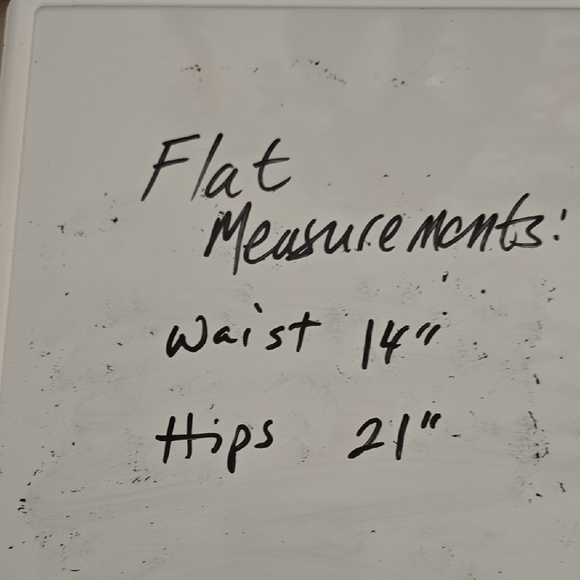 Flat
Measurements:
Waist 14"
Hips 21"